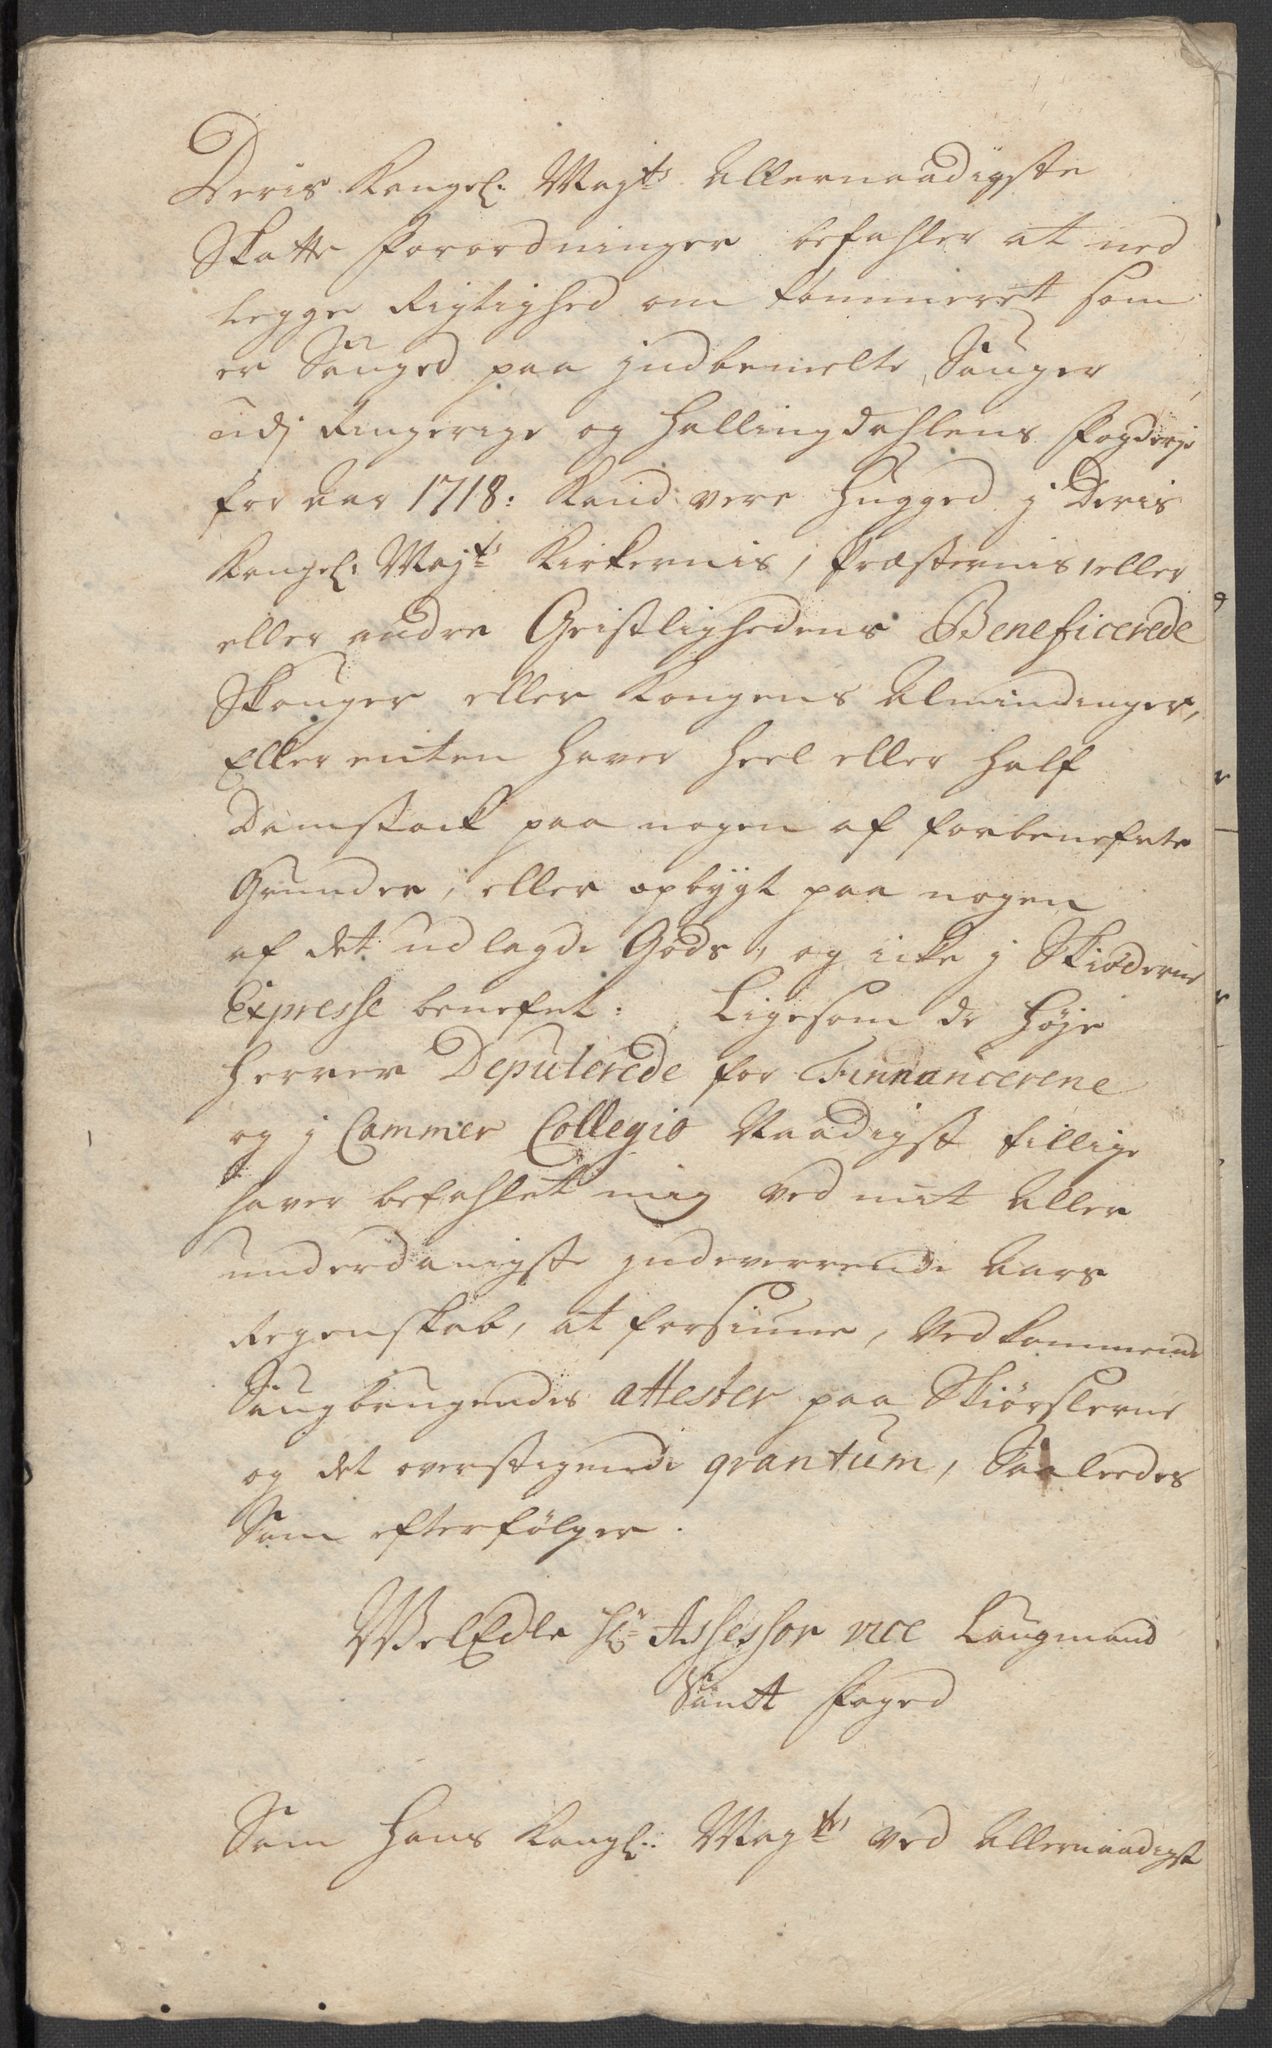 Deris Kongel: Maÿts Allernaadigste
Skatte Forordninger befahler at ned
legge Rigtighed om Tømmeret som
er Sauged paa jndbemelte Sauger
udj Ringerige og Hallingdahlens Fogderje
for aar 1718: Kand vere hugged j Deris
Kongel: Maÿts Kirkernis, Præsternis, eller
eller andre Geistlighedens Beneficerede
Skouger eller Kongens Alminding­er,
Eller enten haver heel eller half
Damstock paa nogen af forbenefnte
Grunder, eller opbygt paa nogen
af det udlagde Gods, og icke j Skiøderne
Expresse benefnt: Ligesom de høje
Herrer Deputerede for Finnancerene
og j Cammer Collegio Naadigst tillige
haver befahlet mig ved mit Aller
underdanigste jndeverrende Aars
Regenskab, at forsiune, Vedkommende
Saugbrugendis attester paa Skiørslerne
og det overstigende qvantum, Saaledes
Som efterfølger.
WelEdle Hr Assessor vice Laugmand
Samt Foged
Som Hans Kongl: Maÿts ved Allernaadigst